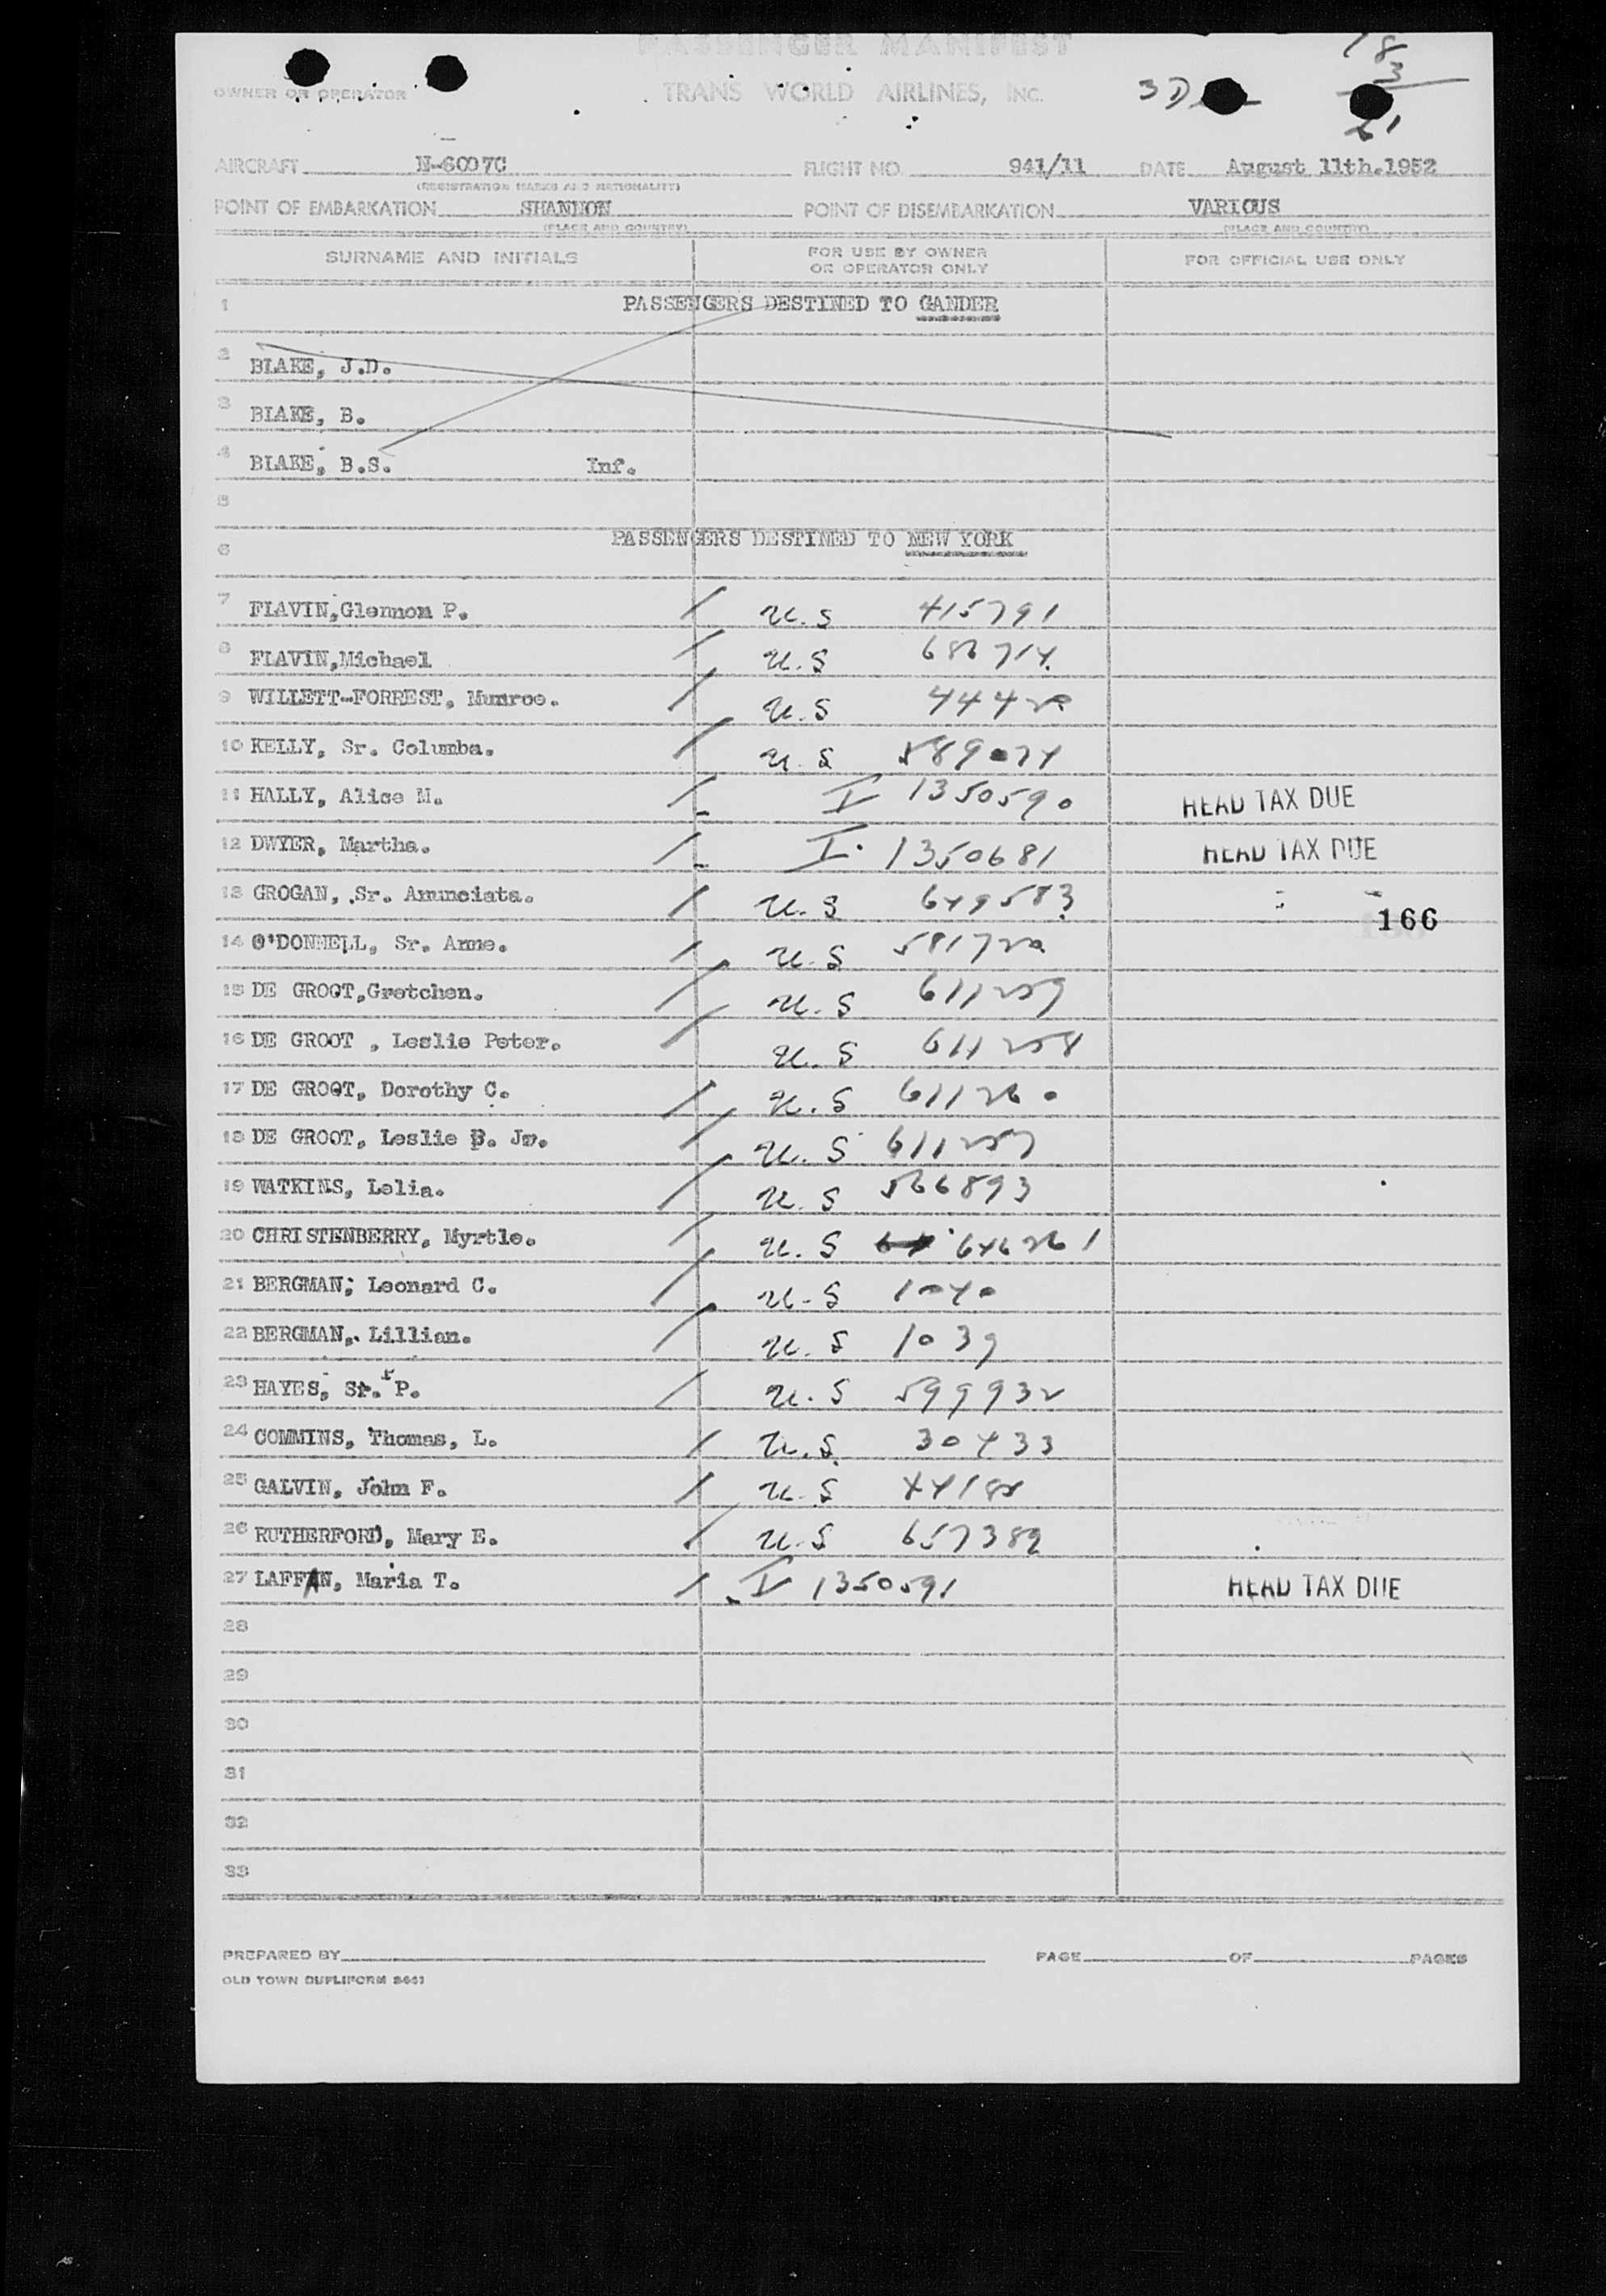 PASSENGER MANIFEST
OWNER OR OPERATOR TRANS WORLD AIRLINES, INC. 3D 18
3
21
AIRCRAFT N-6007C FLIGHT NO. 941/11 DATE August 11th.1952
(REGISTRATION MARKS AND NATIONALITY)
POINT OF EMBARKATION SHANNON POINT OF DISEMBARKATION VARIOUS
(PLACE AND COUNTRY) (PLACE AND COUNTRY)
SURNAME AND INITIALS FOR USE BY OWNER OR OPERATOR ONLY FOR OFFICIAL USE ONLY
1 PASSENGERS DESTINED TO GANDER
2 BLAKE, J.D.
3 BLAKE, B.
4 BLAKE, B.S. Inf.
5
6 PASSENGERS DESTINED TO NEW YORK
7 FLAVIN,Glennon P. / U.S 415791
8 FLAVIN,Michael / U.S 686714
9 WILLETT-FORREST, Munroe. / U.S
10 KELLY, Sr. Columba. / U.S 589074
11 HALLY, Alice M. / I 1350590 HEAD TAX DUE
12 DWYER, Martha. / I 1350681 HEAD TAX DUE
13 GROGAN, Sr. Anunciata. / U.S 649583
166
14 O'DONNELL, Sr. Anne. / U.S 581720
15 DE GROOT,Gretchen. / U.S 611259
16 DE GROOT , Leslie Peter. / U.S 611258
17 DE GROOT, Dorothy C. / U.S 611260
18 DE GROOT, Leslie P. Jr. / U.S 611257
19 WATKINS, Lelia. / U.S 566893
20 CHRISTENBERRY, Myrtle. / U.S 646261
21 BERGMAN, Leonard C. / U.S 1040
22 BERGMAN, Lillian. / U.S 1039
23 HAYES, Sr. P. / U.S 599932
24 COMMINS, Thomas, L. / U.S. 30433
25 GALVIN, John F. / U.S 44182
26 RUTHERFORD, Mary E. / U.S 657382
27 LAFFAN, Maria T. / I 1350591 HEAD TAX DUE
28
29
30
31
32
33
PREPARED BY PAGE OF PAGES
OLD TOWN DUPLIFORM